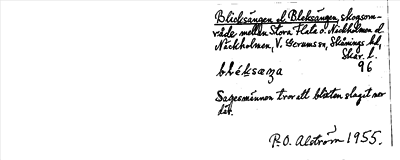 Blicksängen el. Bleksängen, skogsom-
råde mellan Stora Flata o. Näckholmen el.
Näckholmen, V. Gerums sn, Skånings hd,
Skar. l.
96
Sagesmannen tror att blixten slagit ner
där.
P.O. Alström 1955.